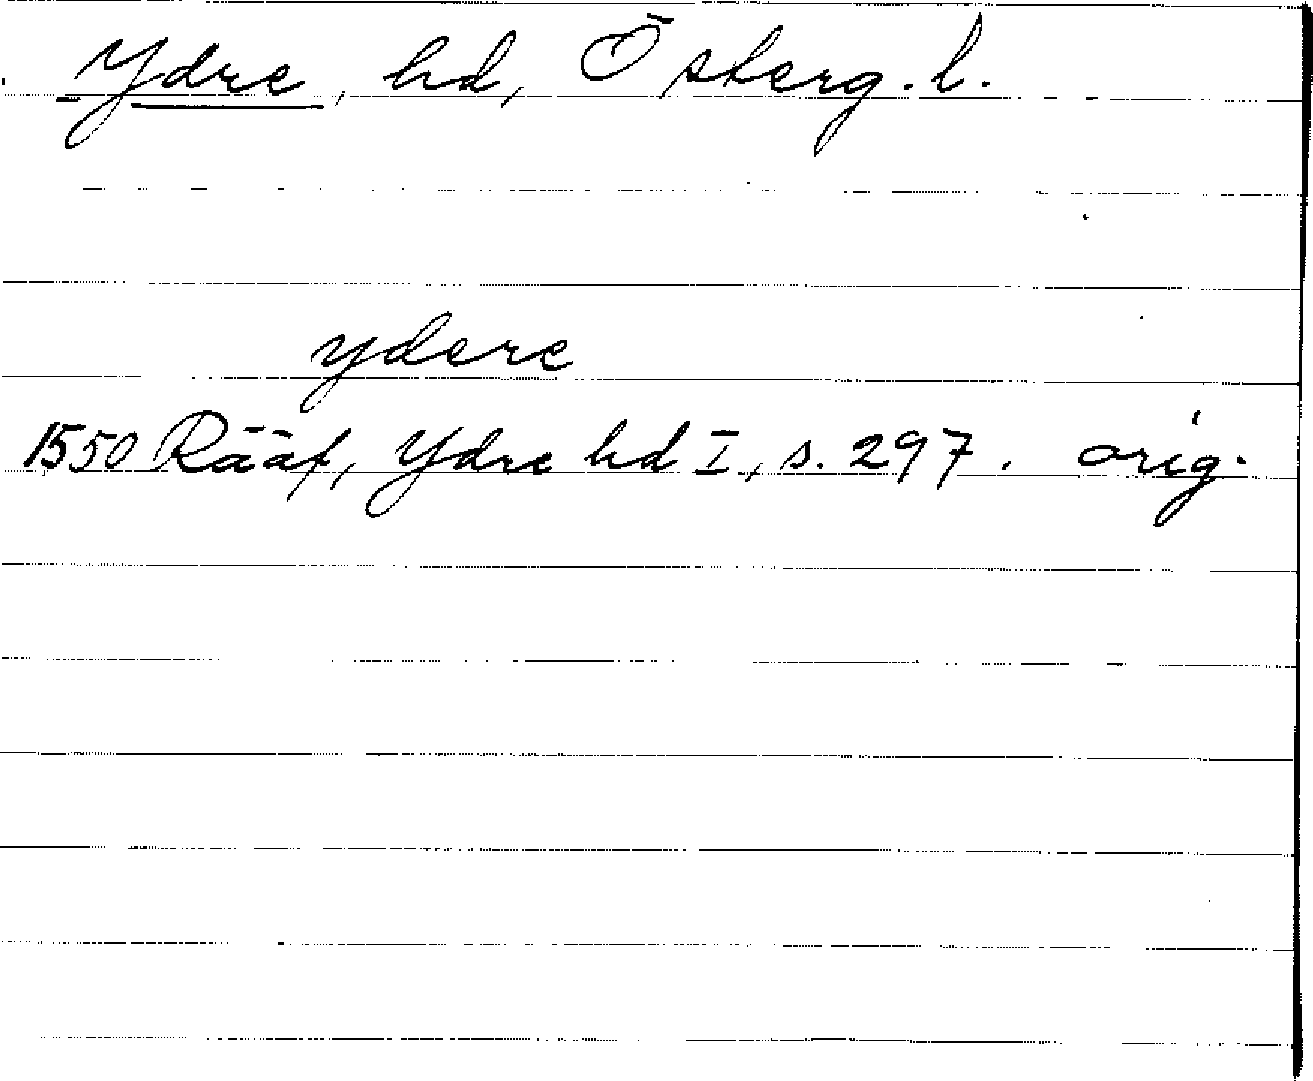 Ydre, hd, Österg. l.
ydere
1550 Rääf, Ydre hd I, s. 297. orig.